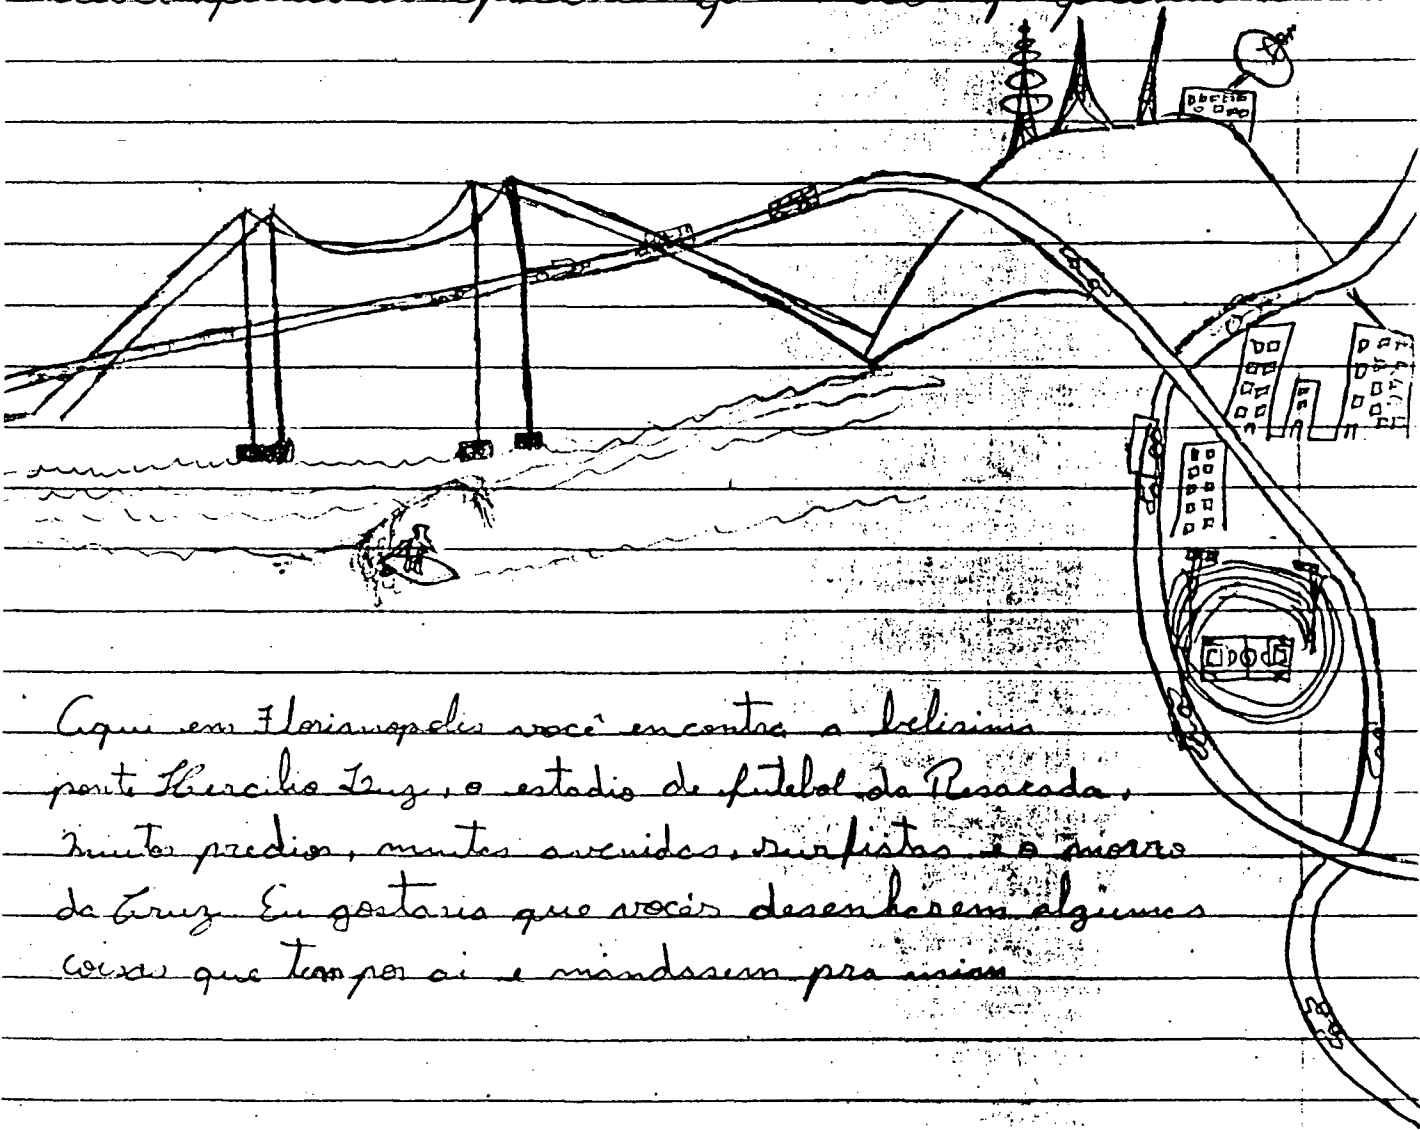 Aqui em Florianopolis você encontra a belisima
ponte Hercilio Luz, o estadio de futebol da Resacada,
muitos predios, muitas avenidas, surfistas e o morro
da Cruz Eu gostaria que vocês desenhasem algumas
coisas que tem por ai e mandasem pra mim